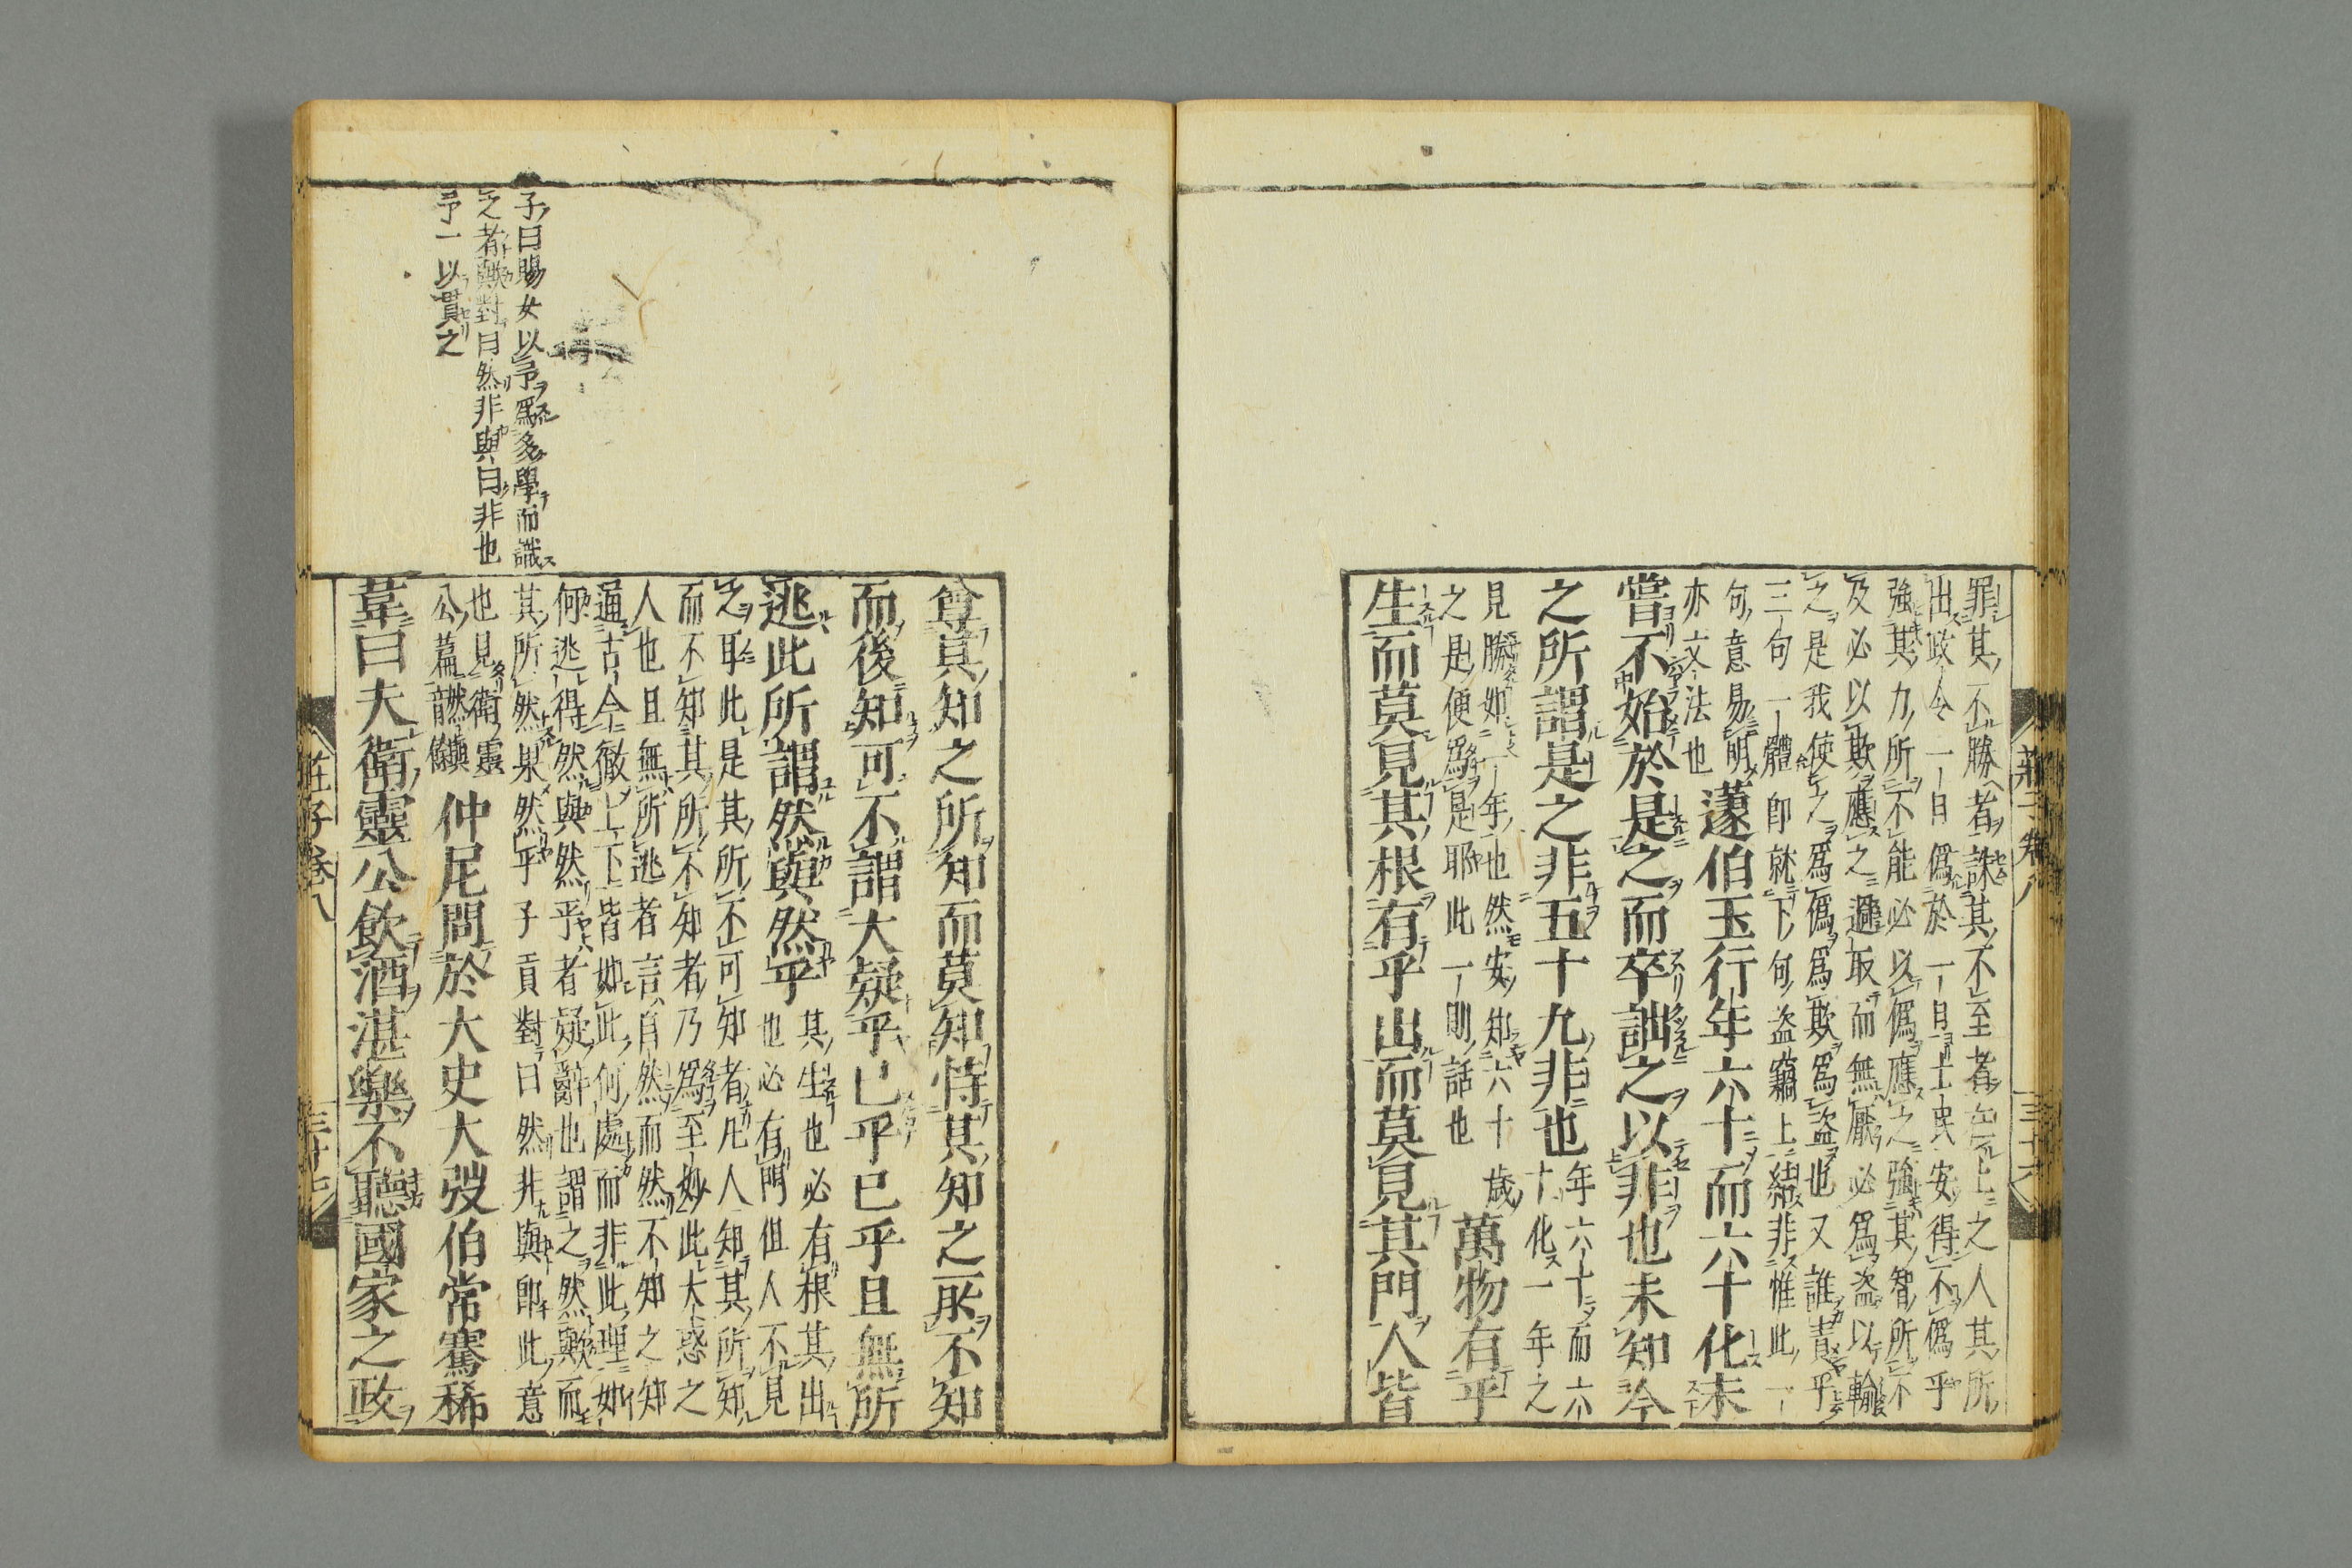 罪其不勝者誅其不至者在上之人其所
出政令一日偽於一日士民安得不偽乎
強其力所不能必以偽應之強其智所不
及必以欺應之遞取而無厭必爲盜以輸
之是我使之爲偽爲欺爲盜也又誰責乎
三句一體即就下句盜竊上結非惟此一
句意易明
亦文法也
蘧伯玉行年六十而六十化未
嘗不始於是之而卒詘之以非也未知今
之所謂是之非五十九非也
年六十而六
十化一年之
見勝如一年也然安知六十歲
之是便爲是耶此一則話也
萬物有乎
生而莫見其根有乎出而莫見其門人皆
莊子卷八
三十六
子曰賜女以予爲多學而識
之者歟對曰然非與曰非也
予一以貫之
尊其知之所知而莫知恃其知之所不知
而後知可不謂大疑乎已乎已乎且無所
逃此所謂然與然乎
其生也必有根其出
也必有門但人不見
之耳此是其所不可知者凡人知其所知
而不知其所不知者乃爲至妙此大惑之
人也且無所逃者言自然而然不知之知
通古今徹上下皆如此何處而非此理如
何逃得然與然乎者疑辭也謂之然歟而
其所然果然乎子貢對曰然非與即此意
也見衛靈
公篇
仲尼問於大史大弢伯常騫稀
韋曰夫衛靈公飲酒湛樂不聽國家之政
莊子卷八
三十七